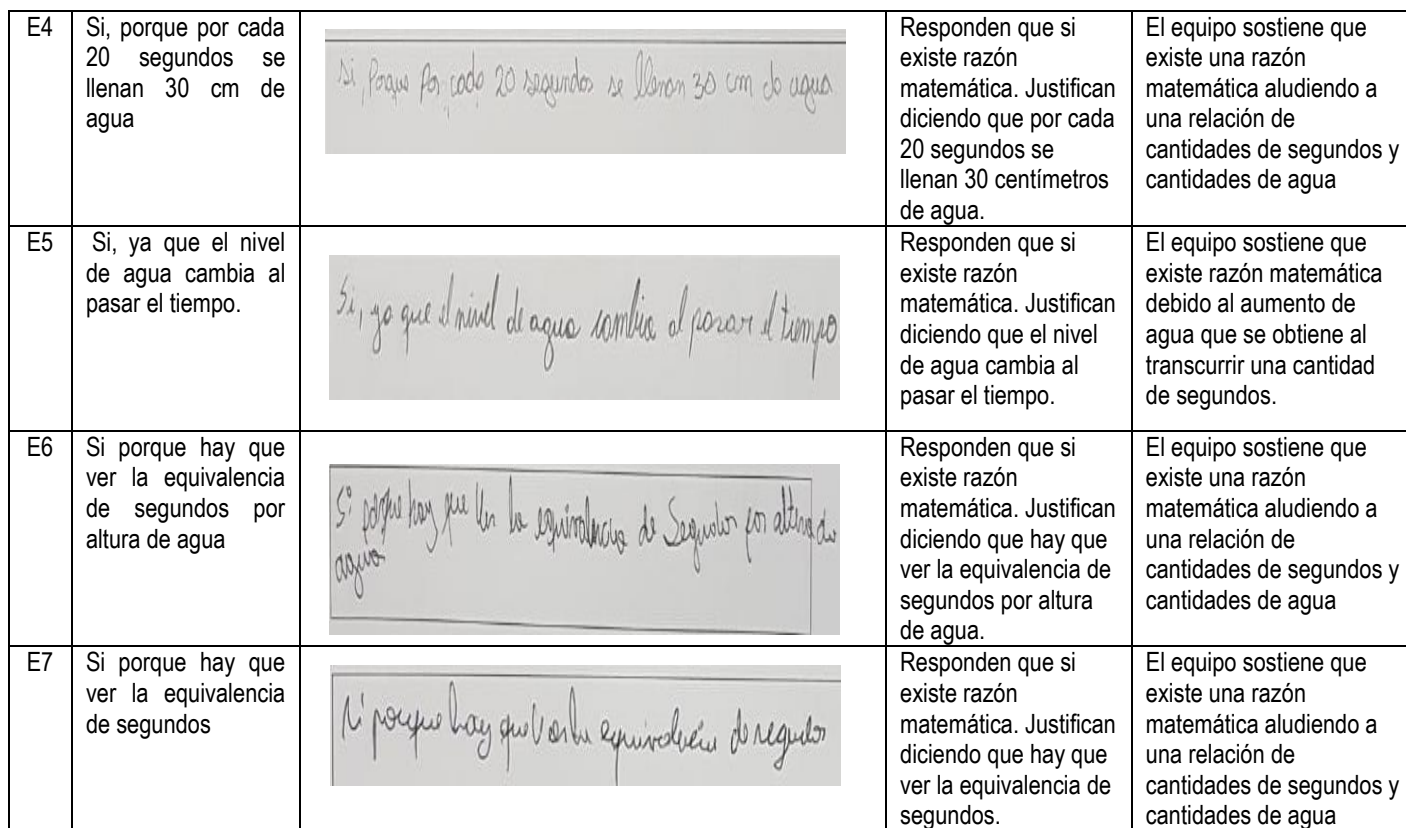 E4
Si, porque por cada
20 segundos se
llenan 30 cm de
agua
Si, Porque Por cada 20 segundos se llenan 30 cm de agua
Responden que si
existe razón
matemática. Justifican
diciendo que por cada
20 segundos se
llenan 30 centímetros
de agua.
El equipo sostiene que
existe una razón
matemática aludiendo a
una relación de
cantidades de segundos y
cantidades de agua
E5
Si, ya que el nivel
de agua cambia al
pasar el tiempo.
Si, ya que el nivel de agua cambia al pasar el tiempo
Responden que si
existe razón
matemática. Justifican
diciendo que el nivel
de agua cambia al
pasar el tiempo.
El equipo sostiene que
existe razón matemática
debido al aumento de
agua que se obtiene al
transcurrir una cantidad
de segundos.
E6
Si porque hay que
ver la equivalencia
de segundos por
altura de agua
Si porque hay que ver la equivalencia de Segundos por altura de
agua
Responden que si
existe razón
matemática. Justifican
diciendo que hay que
ver la equivalencia de
segundos por altura
de agua.
El equipo sostiene que
existe una razón
matemática aludiendo a
una relación de
cantidades de segundos y
cantidades de agua
E7
Si porque hay que
ver la equivalencia
de segundos
Si porque hay que ver la equivalencia de segundos
Responden que si
existe razón
matemática. Justifican
diciendo que hay que
ver la equivalencia de
segundos.
El equipo sostiene que
existe una razón
matemática aludiendo a
una relación de
cantidades de segundos y
cantidades de agua